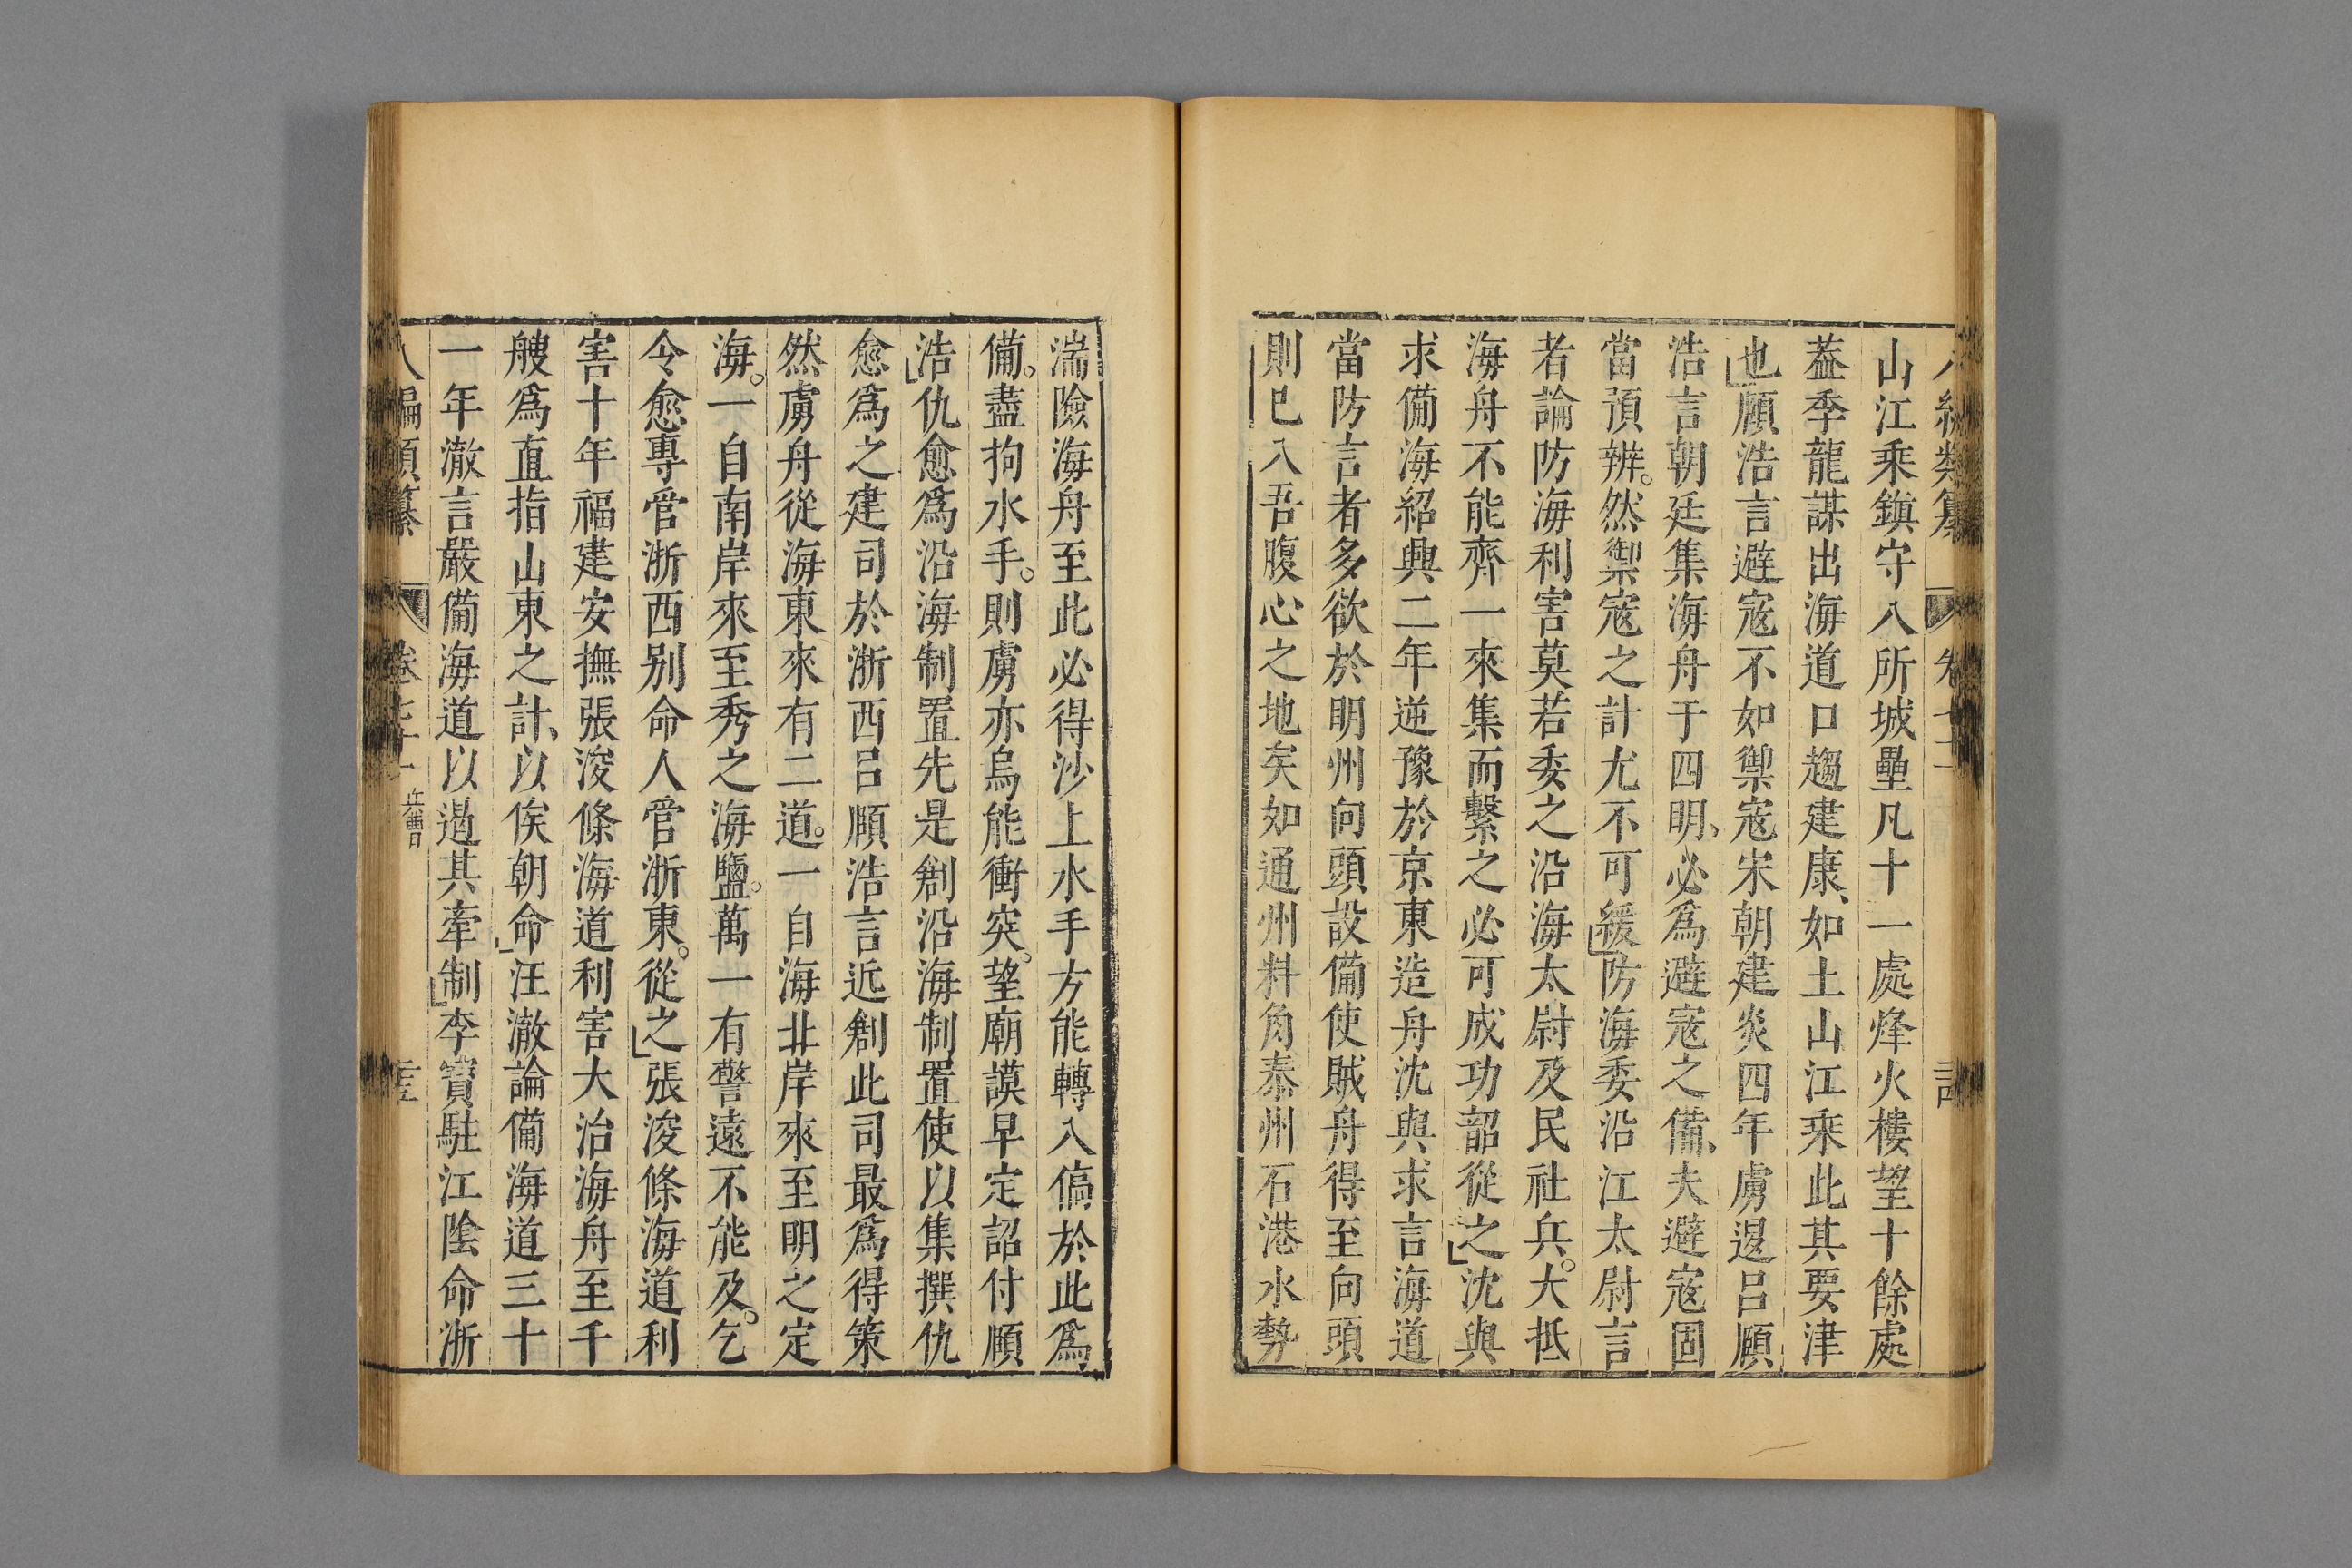 山江乘鎮守八所城壘凡十一處烽火樓望十餘處
葢季龍謀出海道口趨建康、如土山江乘此其要津
也頤浩言避寇不如禦寇宋朝建炎四年虜退呂頤
浩言朝廷集海舟于四明、必爲避寇之備、夫避寇固
當預辨。然禦寇之計尤不可緩防海委沿江太尉言
者論防海利害莫若委之沿海太尉及民社兵。大抵
海舟不能齊一來集而繫之必可成功韶從之沈與
求備海紹興二年逆豫於京東造舟沈與求言海道
當防言者多欲於明州向頭設備使賊舟得至向頭
則已入吾腹心之地矣如通州料角泰州石港水勢
湍險海舟至此必得沙上水手方能轉入傐於此爲
備。盡拘水手。則虜亦烏能衝突。望廟謨早定詔付頤
浩仇愈爲沿海制置先是創沿海制置使以集撰仇
愈爲之建司於浙西呂頤浩言近創此司最爲得策
然虜舟從海東來有二道。一自海北岸來至明之定
海。一自南岸來至秀之海鹽。萬一有警遠不能及。乞
今愈專管浙西别命人管浙東。從之張浚條海道利
害十年福建安撫張浚條海道利害大治海舟至千
艘爲直指山東之計、以俟朝命汪澈論備海道三十
一年澈言嚴備海道以遏其牽制李寶駐江陰命浙
八編類纂 卷